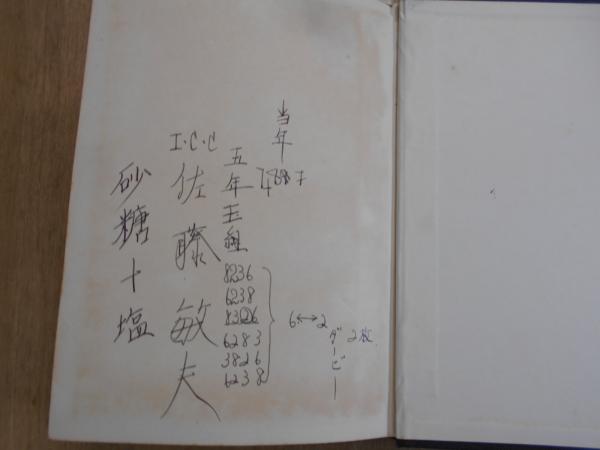 当年
五年五組
I・C・C
佐藤敏夫
砂糖十塩
8236
6238
83226
6283
3826
6238
6↔2
ダービー
2枚